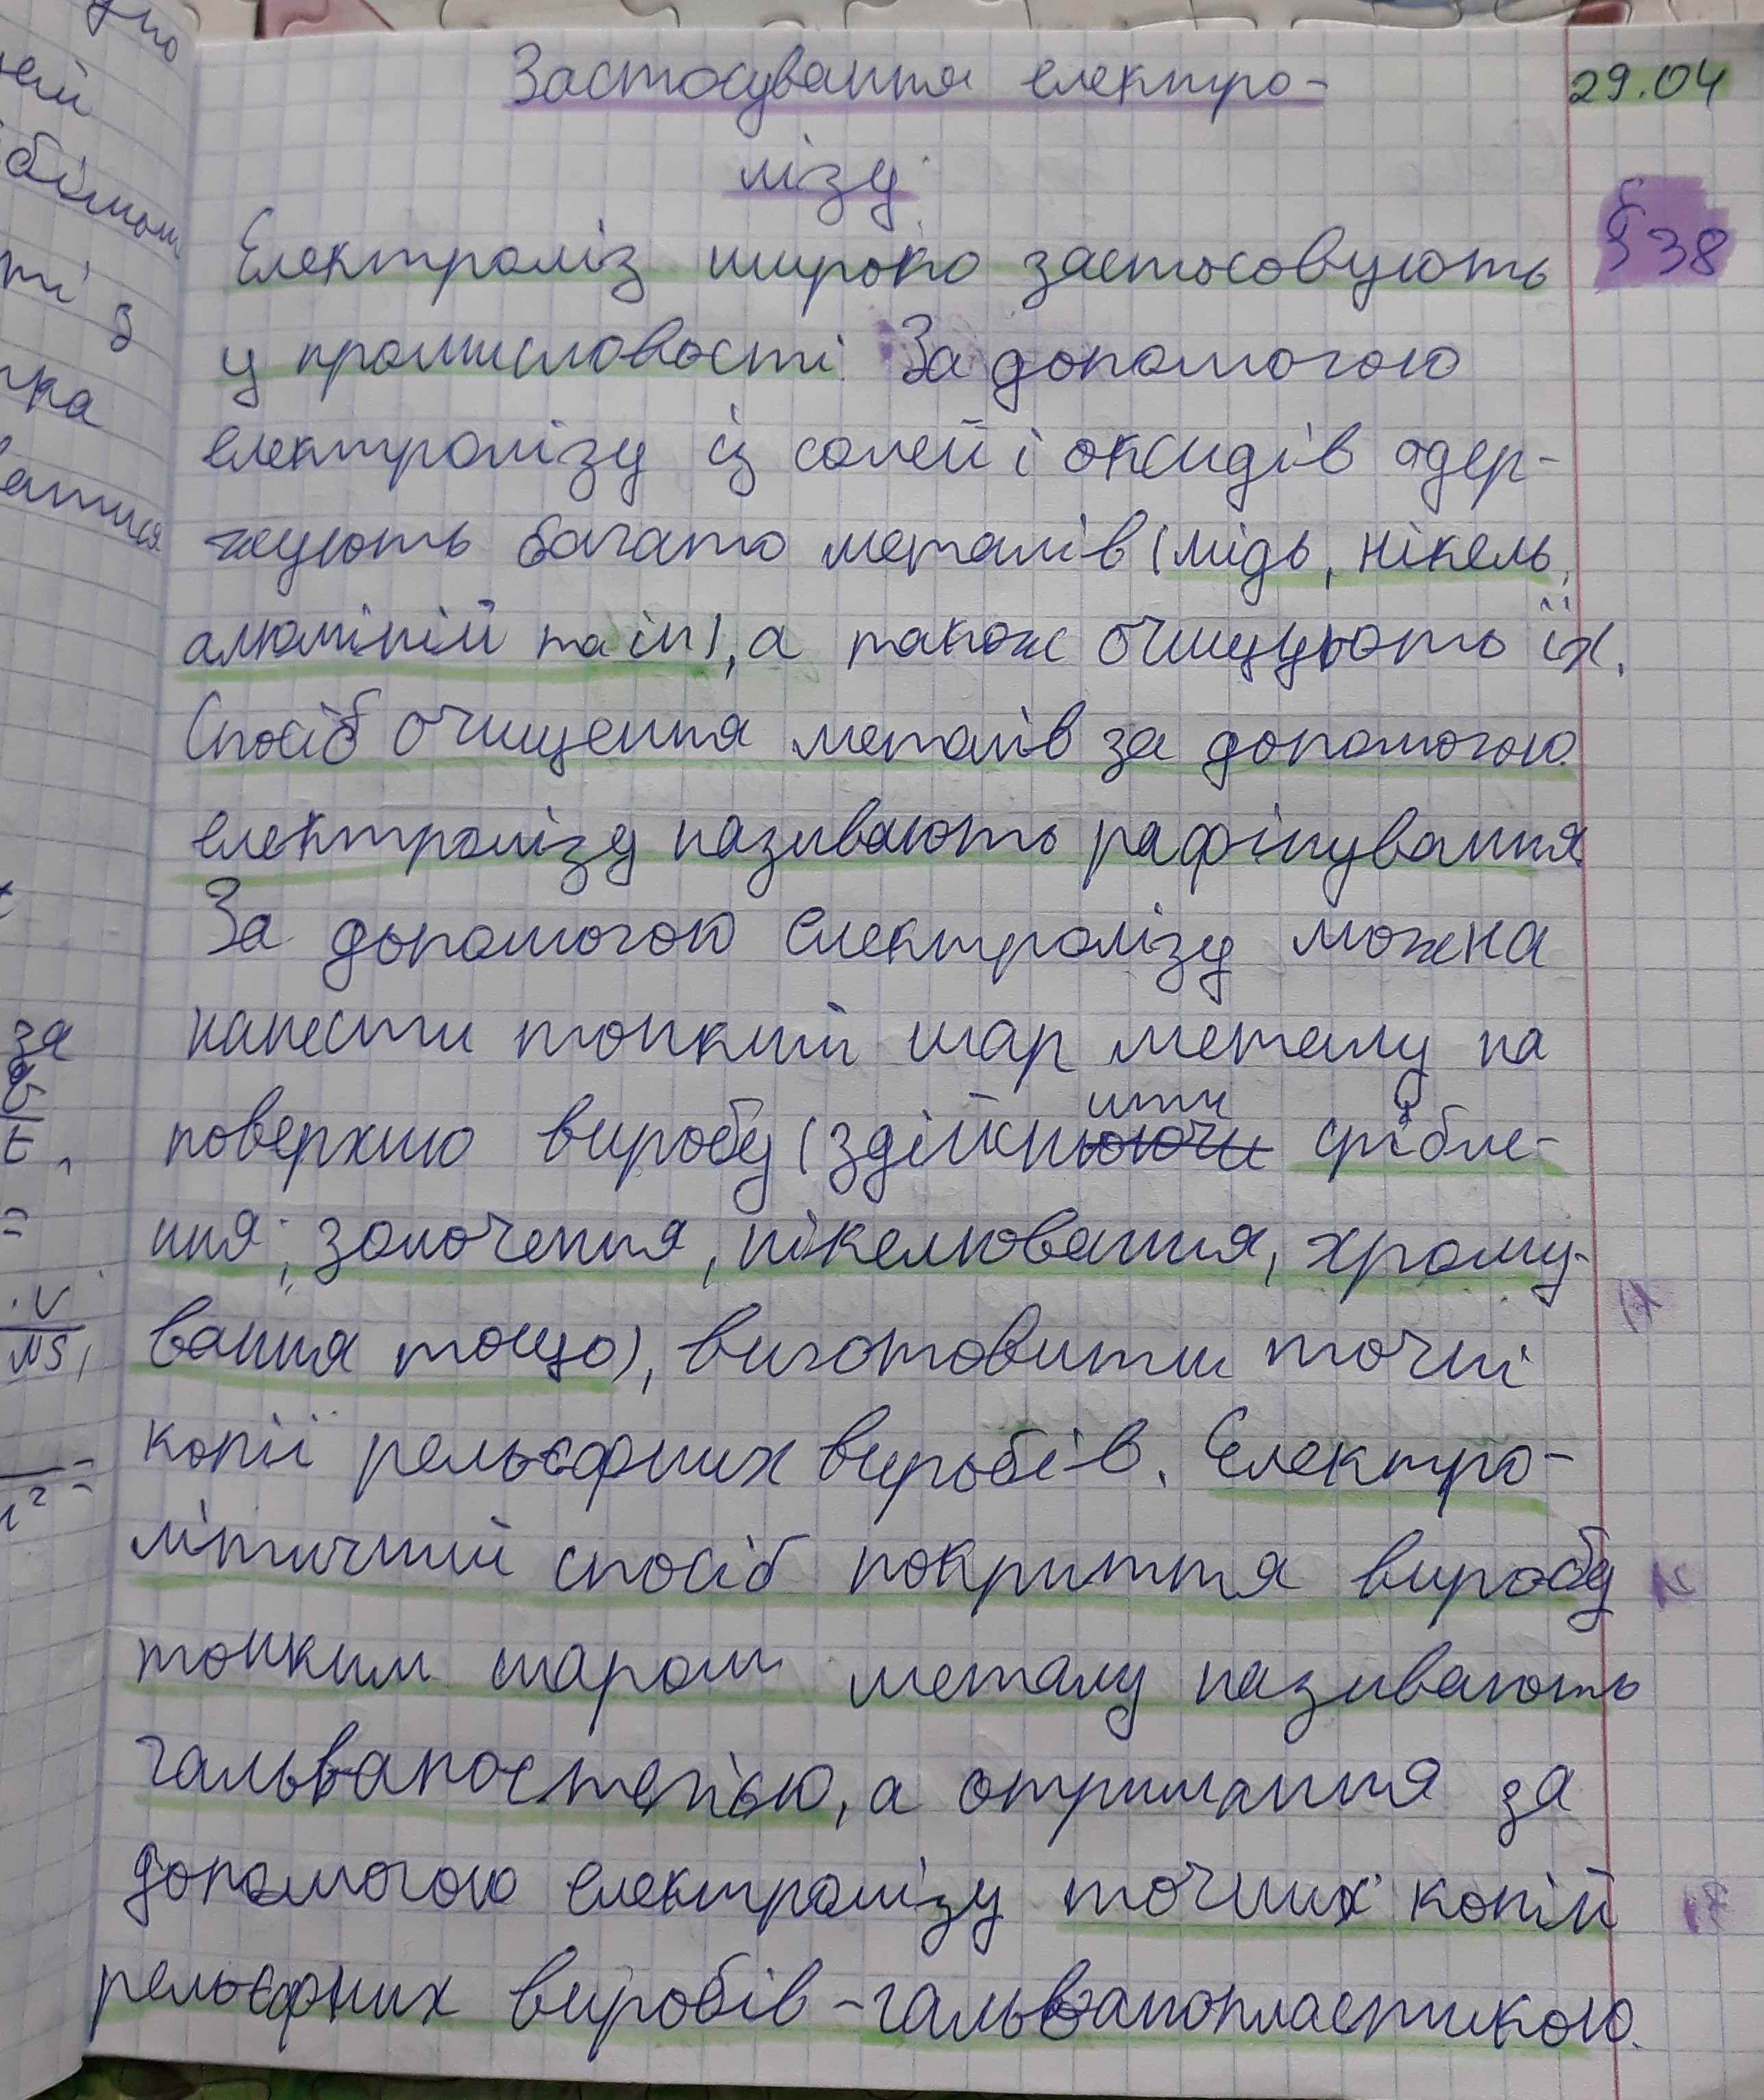 Застосування електро-
29.04
лізу
§38
Електроліз широко застосовують
у промисловості. За допомогою
електролізу із солей і оксидів одер-
жують багато металів (мідь, нікель,
алюміній та ін), а також очищують їх.
Спосіб очищення металів за допомогою
електролізу називають рафінування
За допомогою електролізу можна
нанести тонкий шар металу на
ити
поверхню виробу (здійснюючи срібле-
ння, золочення, нікелювання, хрому-
вання тощо), виготовити точні
копії рельєфних виробів. Електро-
літичний спосіб покриття виробу
тонким шаром металу називають
гальваностегією, а отримання за
допомогою електролізу точних копій
рельєфних виробів - гальванопластикою.